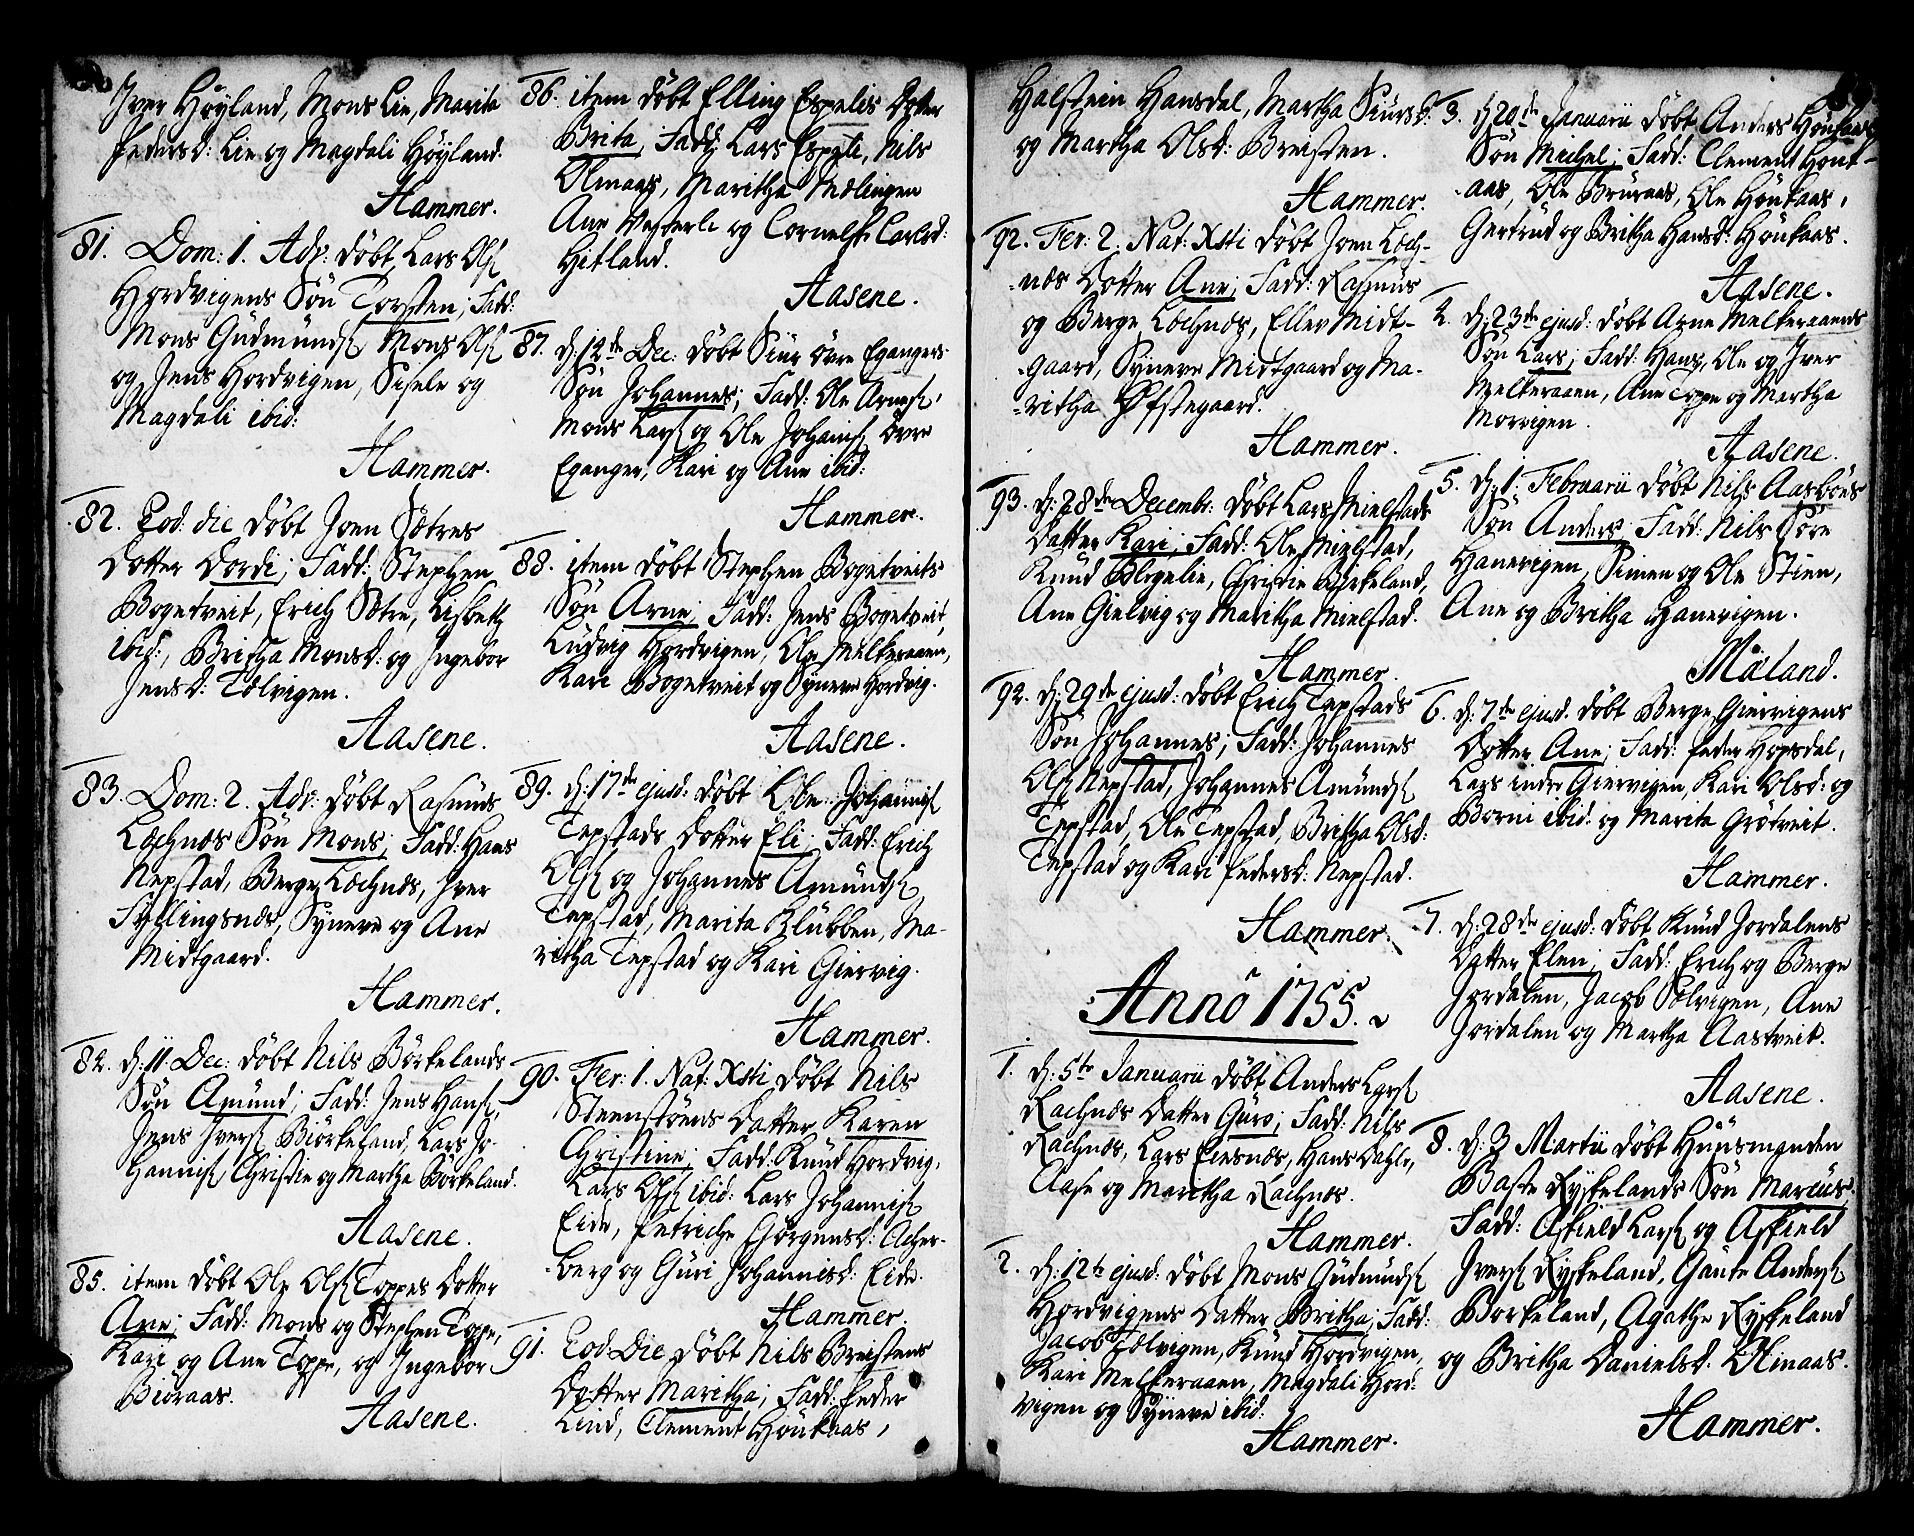 Iver Høyland, Mons Lie, Marita
Pedersd: Lie og Magdali Høyland.
Hammer.
81. Dom: 1. Adv: døbt Lars Ols:
Hordvigens Søn Torsten; Fadd:
Mons Gudmunds: Mons Ols:
og Jens Hordvigen, Sisele og
Magdali ibid:
Hammer.
82. Eod: die døbt Joen Sætres
Dotter Dordi; Fadd: Stephen
Bogetveit, Erich Sætre, Lisbeth
ibid:, Britha Monsd: og Ingebor
Jensd: Tolvigen.
Aasene.
83. Dom: 2. Adv: døbt Rasmus
Lochnæs Søn Mons; Fadd: Hans
Nepstad, Berge Lochnæs, Iver
Syllingsnæs, Syneve og Ane
Midtgaard.
Hammer.
84. d: 11 Dec: døbt Nils Børkelands
Søn Amund; Fadd: Jens Hans:,
Jens Ivers: Biørkeland, Lars Jo-
hannis: Christie og Martha Børkeland.
Aasene.
85. item døbt Ole Ols: Toppes Dotter
Ane; Fadd: Mons og Stephen Toppe,
Kari og Ane Toppe, og Ingebor
Bioraas.
Aasene.
86. item døbt Elling Espelis Dotter
Brita; Fadd: Lars Espeli, Nils
Olmaas, Maritha Mælingen
Ane Vesterli og Cornelse Carlsd:
Hitland.
Aasene.
87. d: 12de Dec: døbt Siur Øvre Egangers
Søn Johannes; Fadd: Ole Arnes:,
Mons Lars: og Ole Johanis: Øvre
Eganger, Kari og Ane ibid:
Hammer.
88. item døbt Stephen Bogetveits
Søn Arne; Fadd: Jens Bogetveit,
Ludvig Hordvigen, Ole Melkeraaen,
Kari Bogetveit og Syneve Hordvig.
Aasene.
89. d: 17de ejusd: døbt Ole Johannis:
Tepstads Dotter Eli; Fadd: Erich
Ols: og Johannes Amunds:
Tepstad, Marita Klubben, Ma-
ritha Tepstad og Kari Giervig.
Hammer.
90. Fer: 1. Nat: Xsti døbt Nils
Steenstøens Datter Karen
Christine; Fadd: Knud Hordvig,
Lars Ols: ibid: Lars Johannis:
Eide, Petriche Jörgensd: Acher-
berg og Guri Johannisd: Eide.
Hammer.
91. Eod: Die døbt Nils Breistens
Dotter Maritha; Fadd: Peder
Lind, Clement Høukaas,
Halstein Hansdal, Martha Siursd:
og Martha Olsd: Breisten.
Hammer.
92. Fer: 2. Nat: Xsti døbt Joen Loch-
næs Dotter Ane; Fadd: Rasmus
og Berge Lochnæs, Elles Midt-
gaard, Syneve Midtgaard og Ma-
ritha Øfstegaard.
Hammer.
93. d: 28de Decembr: døbt Lars Mielstads
Datter Kari; Fadd: Ole Mielstad,
Knud Blegelie, Christie Birkeland,
Ane Gielvig og Maritha Mielstad.
Hammer.
94. d: 29de ejusd: døbt Erich Tepstads
Søn Johannes; Fadd: Johannes
Ols: Nepstad, Johannes Amunds:
Tepstad, Ole Tepstad, Britha Olsd:
Tepstad og Kari Pedersd: Nepstad.
Hammer.
Anno 1755.
1. d: 5te Januarii døbt Anders Lars:
Rachnæs Datter Guro; Fadd: Nils
Rachnæs, Lars Eiesnæs, Hans Dahle,
Aase og Maritha Rachnæs.
Hammer.
2. d: 12te ejusd: døbt Mons Gudmunds:
Hordvigens Datter Britha; Fadd:
Jacob Tolvigen, Knud Hordvigen,
Kari Melkeraaen, Magdali Hord-
vigen og Syneve ibid:
Hammer.
3. d: 20de Januarii døbt Anders Høukaas
Søn Michel; Fadd: Clement Høuk-
aas, Ole Bruraas, Ole Høukaas,
Gertrud og Britha Hansd: Høukaas.
Aasene.
4. d: 23de ejusd: døbt Arne Melkeraaens
Søn Lars; Fadd: Hans, Ole og Iver
Melkeraaen, Ane Toppe og Martha
Morvigen.
Aasene.
5. d: 1. Februarii døbt Nils Aasbøes
Søn Anders; Fadd: Nils Søre
Hanevigen, Simen og Ole Stien,
Ane og Britha Hanevigen.
Måland.
6. d: 7de ejusd: døbt Berge Giervigens
Dotter Ane; Fadd: Peder Hopsdal,
Lars indre Giervigen, Kari Olsd: og
Borni ibid: og Marita Grøtveit.
Hammer.
7. d: 28de ejusd: døbt Knud Jordalens
Datter Elen; Fadd: Erich og Berge
Jordalen, Jacob Solvigen, Ane
Jordalen og Martha Aastveit.
Aasene.
8. d: 3 Martii døbt Huusmanden
Baste Ryskelands Søn Marcus.
Fadd: Askield Lars: og Askield
Ivers: Ryskeland, Gaute Anders:
Borkeland, Agathe Ryskeland
og Britha Danielsd: Olmaas.
Hammer.